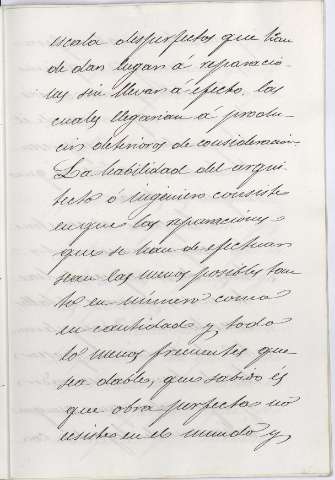 escala desperfectos que han
de dar lugar á reparacio-
nes sin llevar á efecto, las
cuales llegarian á produ-
cir deterioros de consideracion.
La habilidad del arqui-
tecto ó ingeniero consiste
en que las reparaciones
que se han de efectuar
sean las menos posibles tan-
to en número como
en cantidad y, todo
lo menos frecuentes que
sea dable, que sabido és
que obra perfecta no
existe en el mundo y,